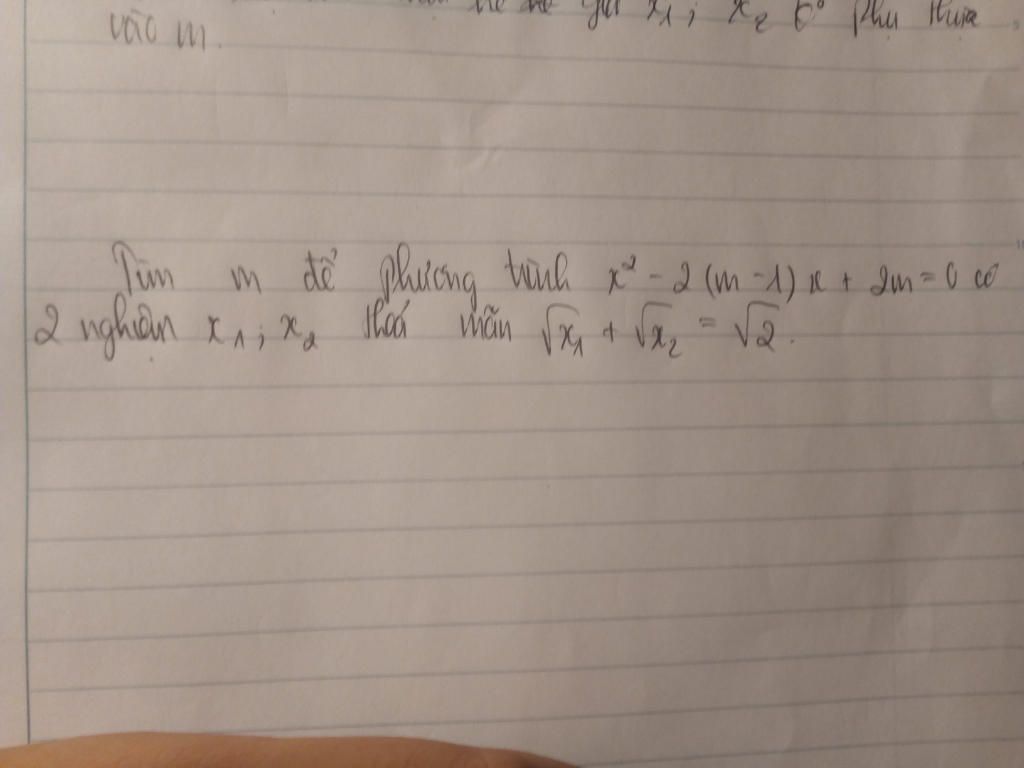 x₁; x₂ k° phụ thuộc
vào m.
Tìm m để phương trình x² - 2(m-1)x + 2m = 0 có
2 nghiệm x₁; x₂ thoả mãn √x₁ + √x₂ = √2.